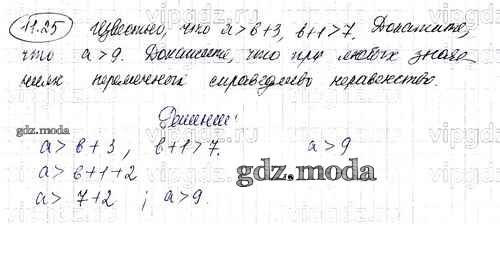 11.25 Известно, что a > b+3, b+1 > 7. Докажите,
что a > 9. Докажите, что при любых значе
ниях переменных справедливо неравенство.
Решение:
a > b+3, b+1 > 7. a > 9
a > b+1+2
a > 7+2 ; a > 9.
gdz.moda
gdz.moda
vipgdz